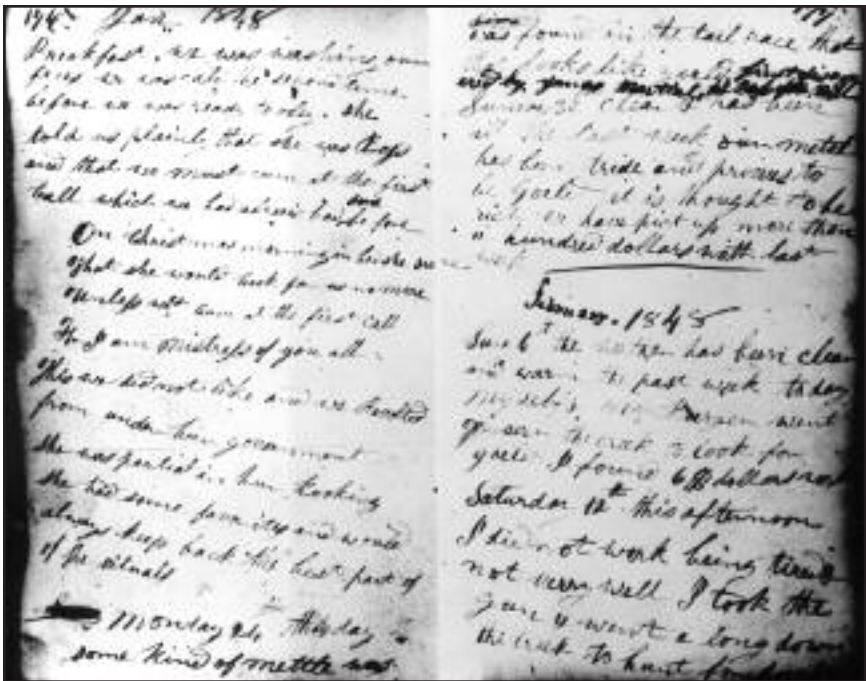 Jan. 1848
Breakfast. we was washing our
faces we was late the second time
before we was ready to day. she
told us plainly that she was Boss
and that we must cum at the first
call which we had always before
On Christmas morning in bed she
that she would cook for us no more
unless we cum at the first call
For I am Mistress of you all
This we did not like and we
from under her government
She was partial in her Cooking
She had some favorites and would
always keep back the best part of
of the vituals
Monday 24 this day
some kind of mettle was
was found in the tail race that
that looks like
Sunday 30 clear & has been
all the last week our metal
has been tride and prooves to
be goald it is thought to be
rich we have pict up more than
a hundred dollars last
week
1848
Sun 6 the has been clear
and warm the past week to day
myself & went
the creek to look for
goald I found 6 dollars
Saturday 12th this afternoon
I did not work being tired &
not verry well I took the
gun & went a long down
the creek to hunt